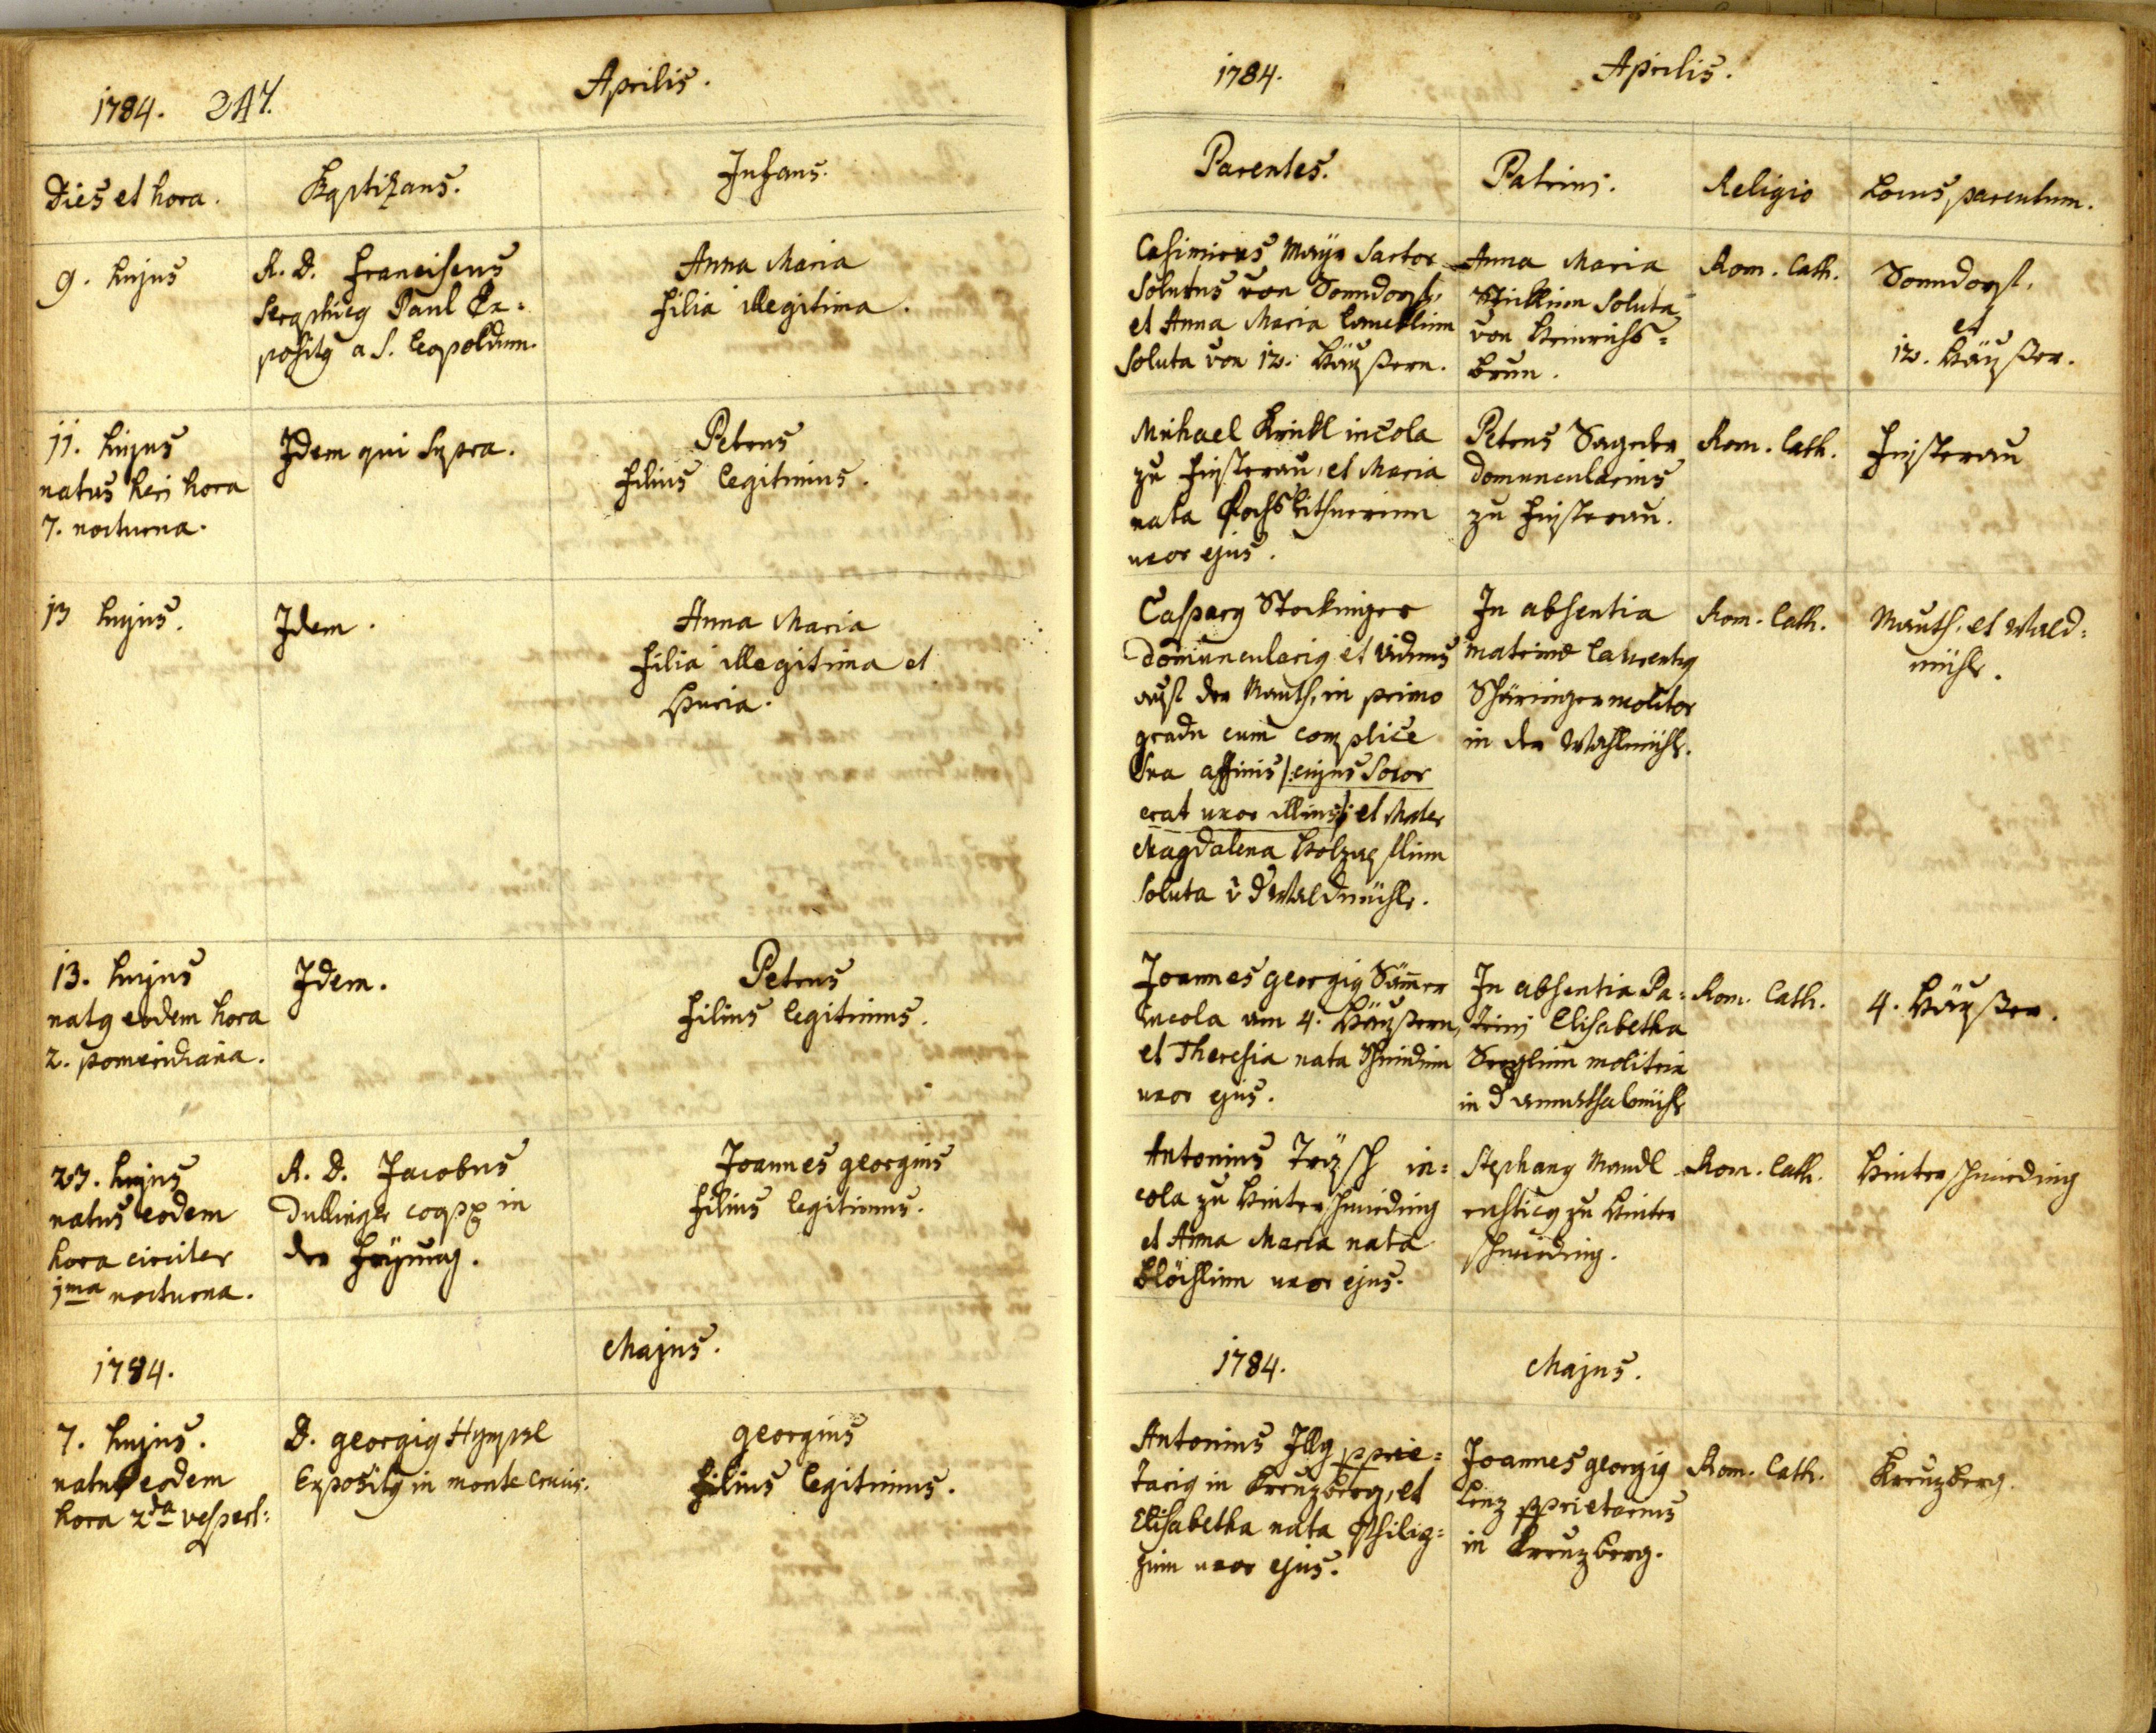 1784. 247.
Aprilis.
Dies et hora.
Baptizans.
Infans.
9. hujus
R. D. Franciscus
Seraphicus Paul Ex=
positus a S. Leopoldum.
Anna Maria
filia illegitima.
11. hujus
natus heri hora
7. nocturna.
Idem qui supra.
Petrus
filius legitimus.
13 hujus.
Idem.
Anna Maria
filia illegitima et
spuria.
13. hujus
natus eodem hora
2. pomeridiana.
Idem.
Petrus
filius legitimus.
23. hujus
natus eodem
hora circiter
1ma nocturna.
R. D. Jacobus
Dullinger coopr in
der Freyung.
Joannes georgius
filius legitimus.
1784.
Majus.
7. hujus.
natus eodem
hora 2da vespert:
D. georgius
Expositus in monte Crucis.
georgius
filius legitimus.
1784.
Aprilis.
Parentes.
Patrini.
Religio
Locus parentum.
Casimirus Mayr Sartor
solutus von Sonndorf,
et Anna Maria
soluta von 12. Häußern.
Anna Maria
soluta
von Heinrichs=
brun.
Rom. Cath.
Sonndorf,
et
12. Häußer.
Michael Krickl incola
zu Finsterau, et Maria
nata
uxor ejus.
Petrus
domuncularius
zu Finsterau.
Rom. Cath.
Finsterau
Casparus Stockinger
domuncularius et viduus
auf der Mauth, in primo
gradu cum complice
sua affinis /:cujus soror
erat uxor illius:/ et Mater
Magdalena
soluta i d Waldmühle.
In absentia
matrinae Laurentius
molitor
in der Waldmühle.
Rom. Cath.
Mauth, et Wald=
mühle.
Joannes georgius
incola am 4. Häußern,
et Theresia nata Schmidin
uxor ejus.
In absentia Pa=
trini Elisabetha
molitrix
in d
Rom. Cath.
4. Häußer.
Antonius in=
cola zu Hinterschmieding
et Anna Maria nata
Blöchlinn uxor ejus.
Stephanus Mandl
rusticus zu Hinter
schmieding.
Rom. Cath.
Hinterschmieding
1784.
Majus.
Antonius Illg pprie=
tarius in Kreuzberg, et
Elisabetha nata
uxor ejus.
Joannes georgius
Lenz pprietarius
in Kreuzberg.
Rom. Cath.
Kreuzberg.